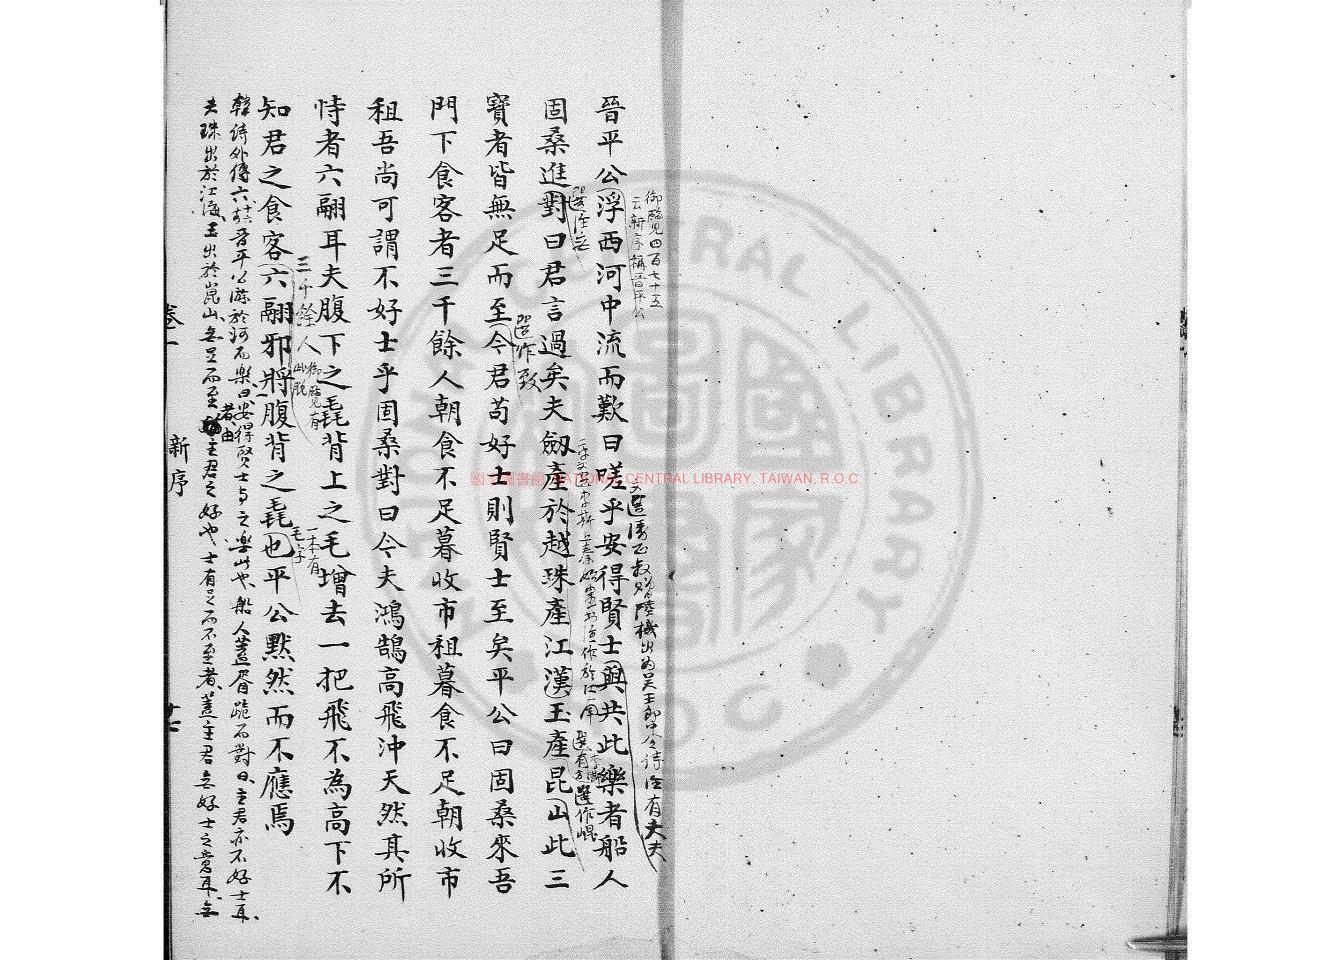 晉平公浮西河中流而歎曰嗟乎安得賢士與共此樂者船人
固桑進對曰君言過矣夫劒產於越珠產江漢玉產昆山此三
寶者皆無足而至今君苟好士則賢士至矣平公曰固桑來吾
門下食客者三千餘人朝食不足暮收市租暮食不足朝收市
租吾尚可謂不好士乎固桑對曰今夫鴻鵠高飛沖天然其所
恃者六翮耳夫腹下之毳背上之毛增去一把飛不為高下不
知君之食客六翮邪將腹背之毳也平公默然而不應焉
御覽四百七十五
云新序稱晉平公
選注無
選作致
選作崐
三千餘人
御覽有
此脫
一本有
毛字
韓詩外傳六 晉平公游於河而樂曰安得賢士與之樂此也船人蓋胥跪而對曰主君亦不好士耳
夫珠出於江海玉出於崑山無足而至者由主君之好也士有足而不至者蓋主君無好士之意耳無
卷一
新序
廿
NATIONAL CENTRAL LIBRARY, TAIWAN, R.O.C